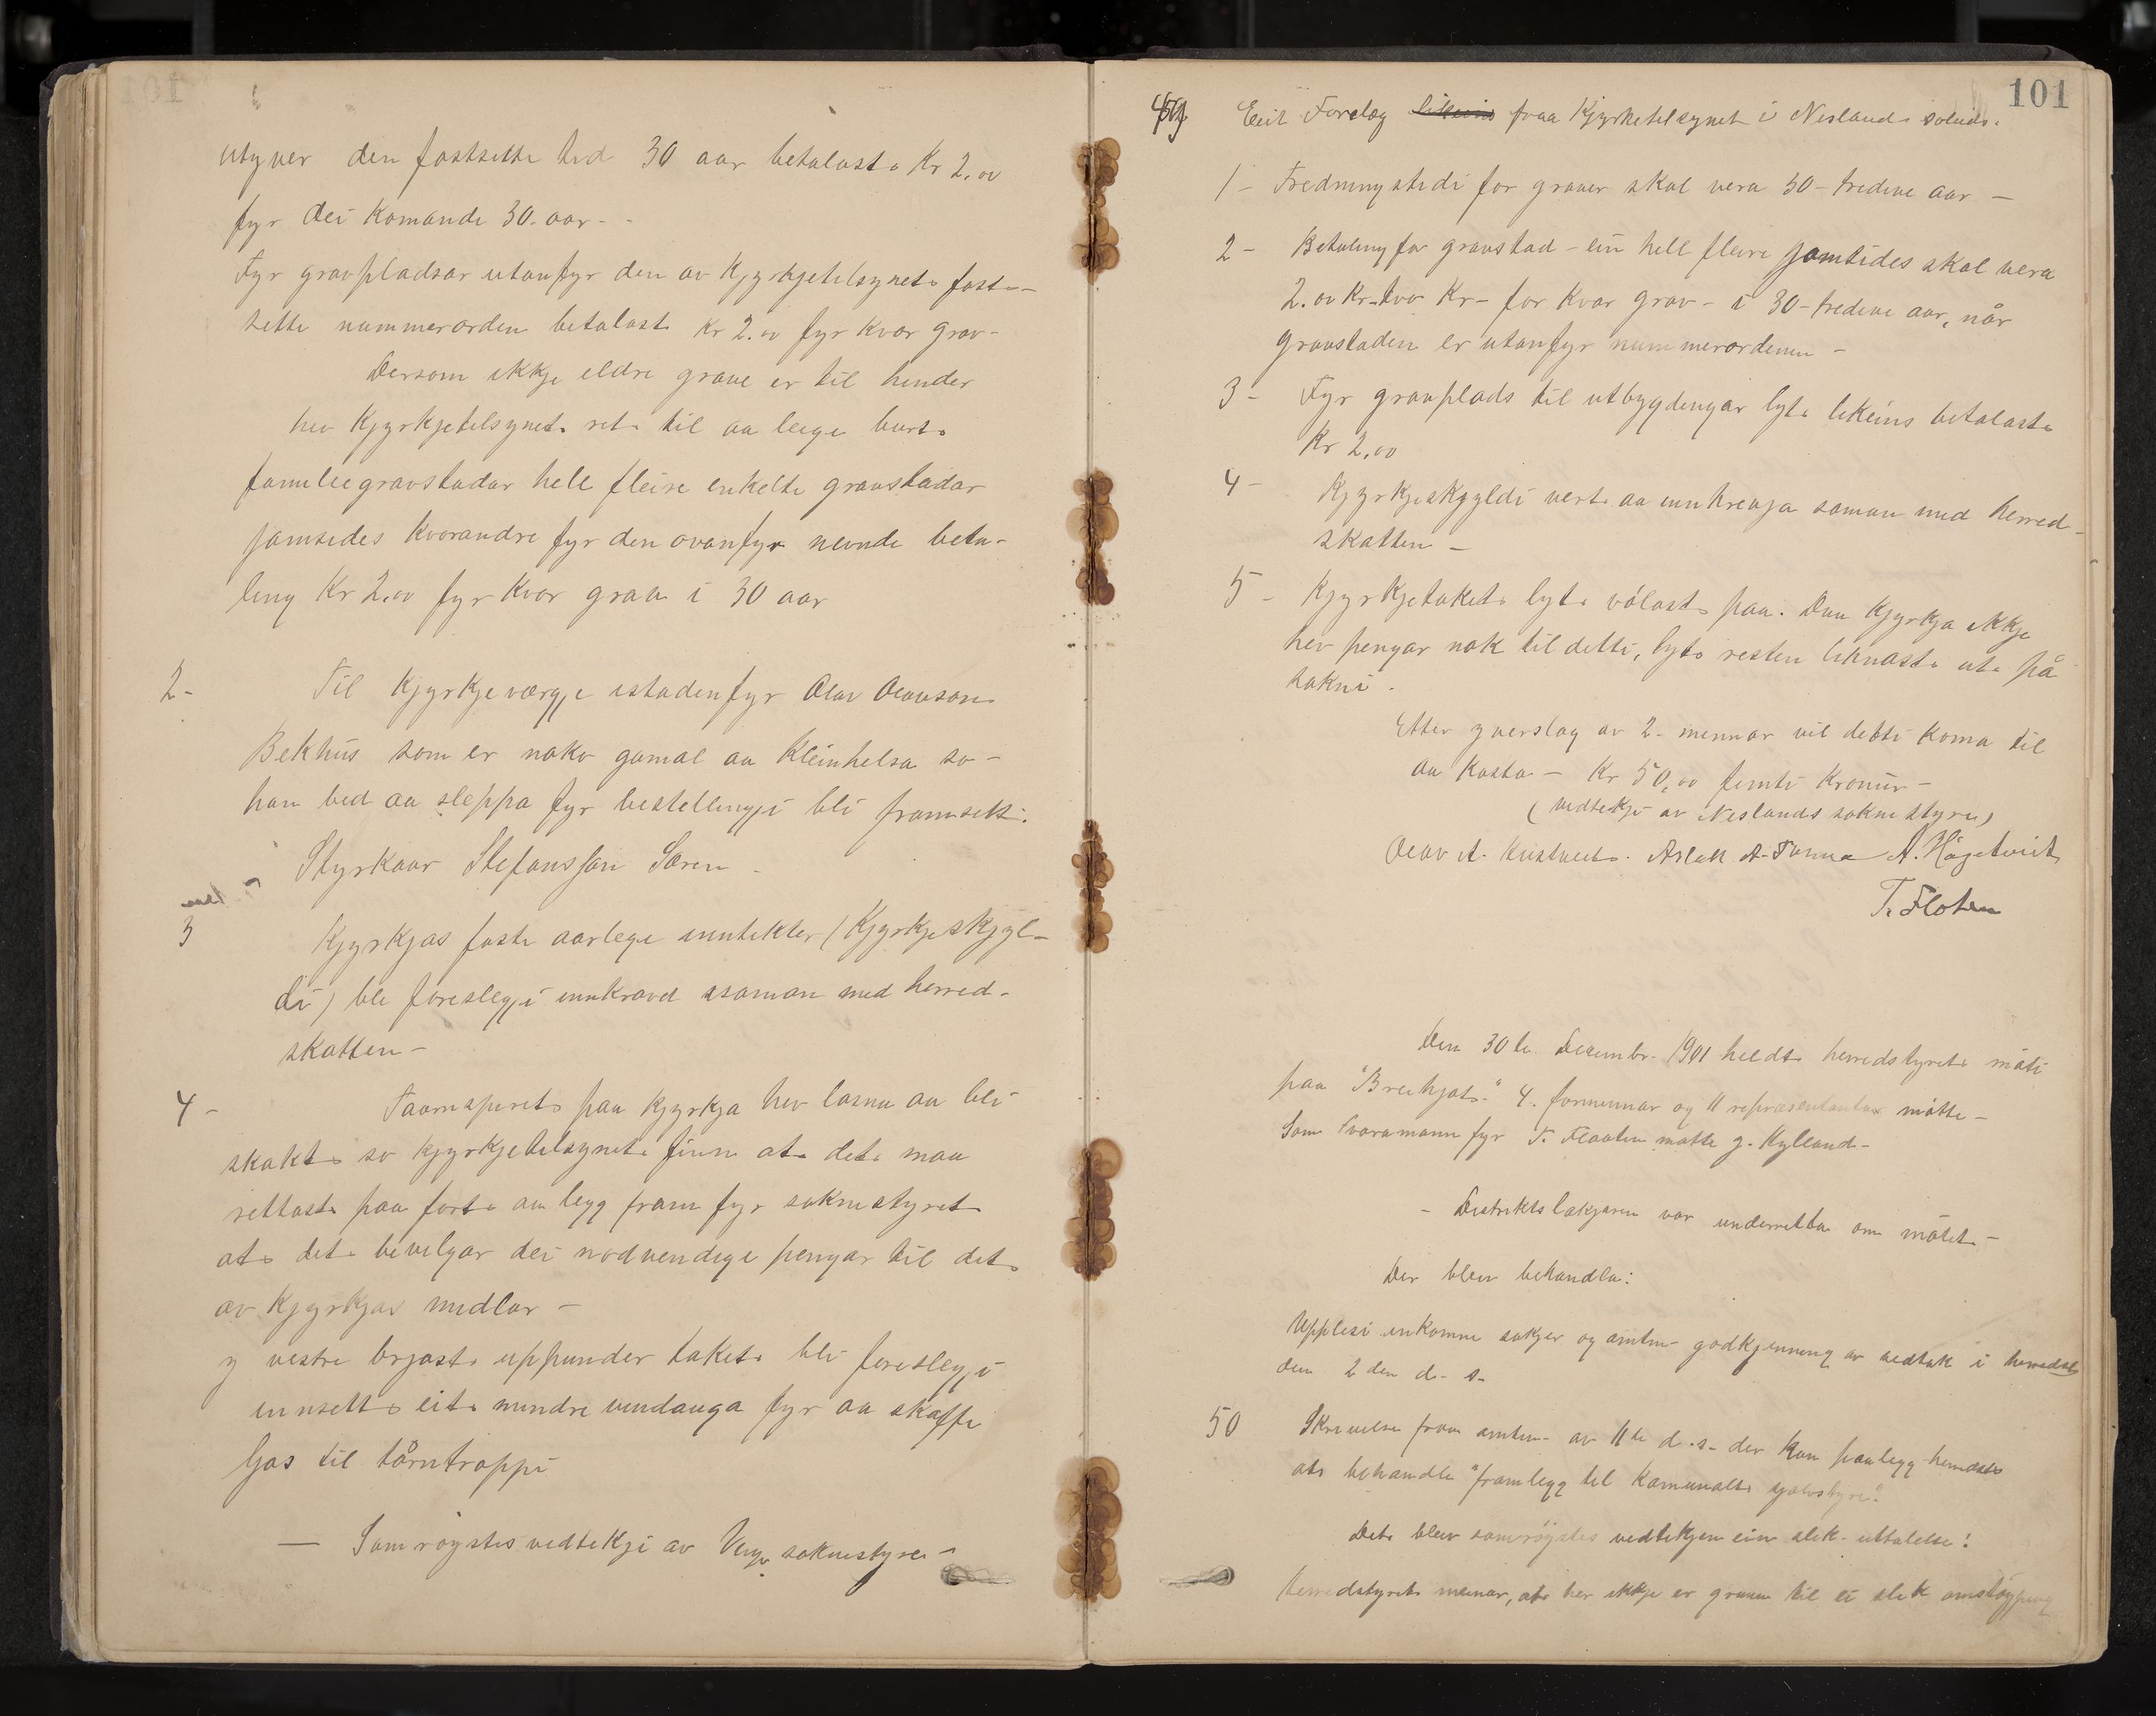 utyver den fastsette tid 30 aar betalast Kr 2.00
fyr dei komande 30 aar -
Fyr gravpladsar utanfyr den av Kjyrkjetilsynet fast-
sette nummerorden betalast Kr 2.00 fyr kvar grav -
Dersom ikkje eldre grave er til hinder
hev Kjyrkjetilsynet ret til aa leige burt
familiegravstadar hell fleire enkelte gravstadar
jamsides kvorandre fyr den ovanfyr nevnde beta-
ling Kr 2.00 fyr kvar grav i 30 aar
2- Til Kjyrkjeværgje istadenfyr Olav Olavson
Bekhus som er noko gamal aa kleinhelsa so -
han bed aa sleppa fyr bestellingji bli framsett:
Styrkaar Stefansson Særen -
3 Kjyrkjas faste aarlege inntekter (Kjyrkjeskjyl-
di) bli foreslegji innkravd saman med herred-
skatten -
4 - Taarnspiret paa Kjyrkja hev lasna aa bli
skakt so kjyrkjetilsynet finn at det maa
rettast paa fort aa legg fram fyr soknestyret
at det bevilgar dei nødvendige pengar til det
av Kjyrkjas midlar -
y vestre brjost uppunder taket bli foreslegji
innsett eit mindre vindauga fyr aa skaffe
ljos til tårntroppi
— Samrøystes vedtekji av Vinje soknestyre -
101
49 Eit Forelag likeins fraa Kjyrketilsynet i Neslands soleids:
1 - Fredningstidi for graver skal vera 30 - tredeve aar —
2 - Betaling for gravstad - ein hell fleire jamtides skal vera
2.00 Kr - tvo Kr - for kvar grav - i 30 - tredeve aar, når
gravstaden er utanfyr nummerordenen -
3 - Fyr gravplads til utbygdingar lyt likeins betalast
Kr 2,00
4 - Kjyrkjeskjyldi vert aa innkrevja saman med herred-
skatten -
5 - Kjyrkjetaket lyt vølast paa. Daa Kjyrkja ikkje
hev pengar nok til detti, lyt resten liknast ut på
sokni.
Etter yverslag av 2 - mennar vil detti koma til
aa kosta - Kr 50,00 femti Kronur -
(vedtekji av Neslands sokne styre)
Olav A. Aslak A. A. Høgetveit
T. Floten
Den 30te Decembr. 1901 heldt herredstyret møti
paa "Breihjot." 4. formennar og 11 repræsentantar møtte -
Som Varamann fyr T. Flaaten møtte G. Nylland -
- Distriktslækjaren var underretta om møtet -
Der blev behandla:
Upplesi innkomne sakjer og amtm. godkjenning av vedtak i herredst
den 2 den d. s.
50 Skrivelse fraa amtm. av 11te d. s. der han paalegg herredst
at behandle "framlegg til Kommunalt sjølvstyre".
Det blev samrøystes vedtekjen ein slik uttalelse:
Herredstyret meinar, at her ikkje er grunn til ei slik omstøyping